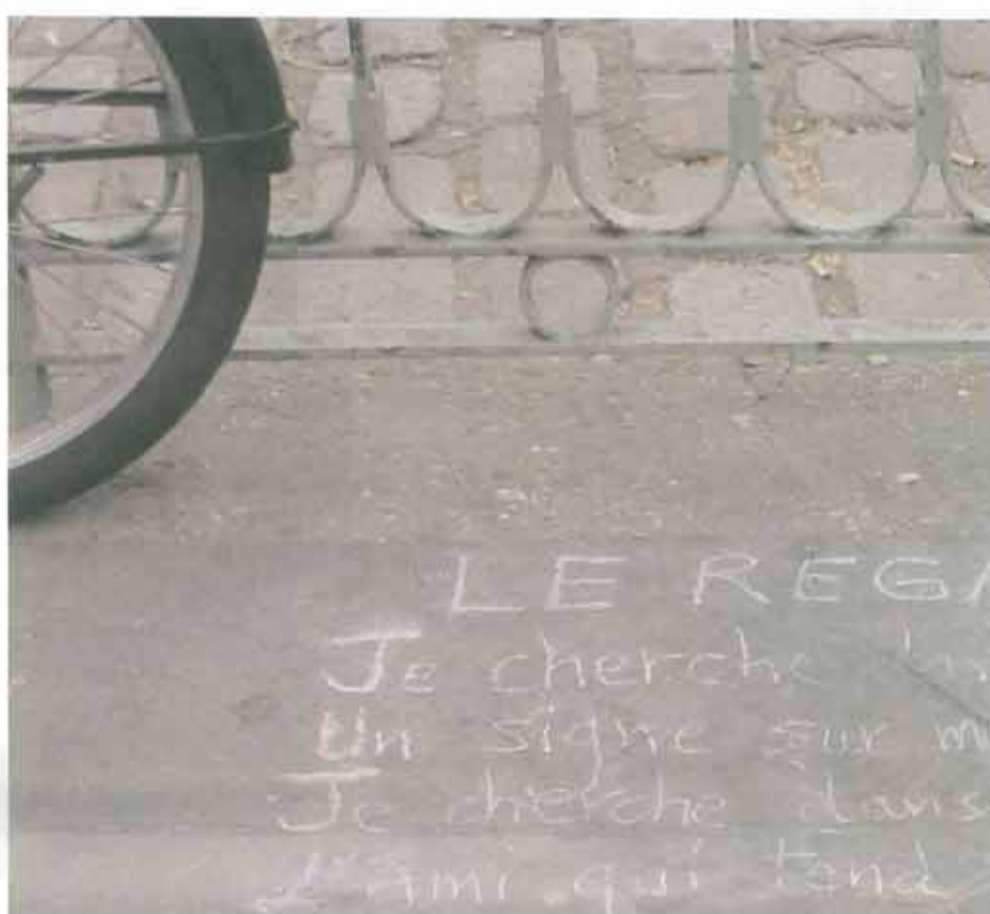 LE REGA
Je cherche
Un signe sur m
Je cherche dans
L'Ami qui tend